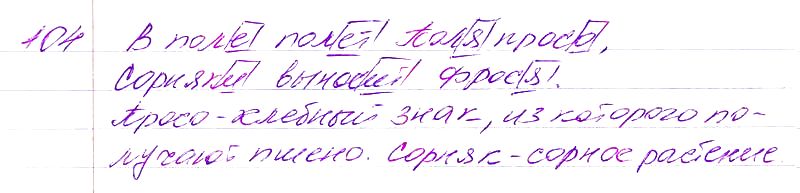 104 В поле полет Поля просо,
Сорняки выносит Фрося.
Просо-хлебный знак, из которого по-
лучают пшено. Сорняк-сорное растение